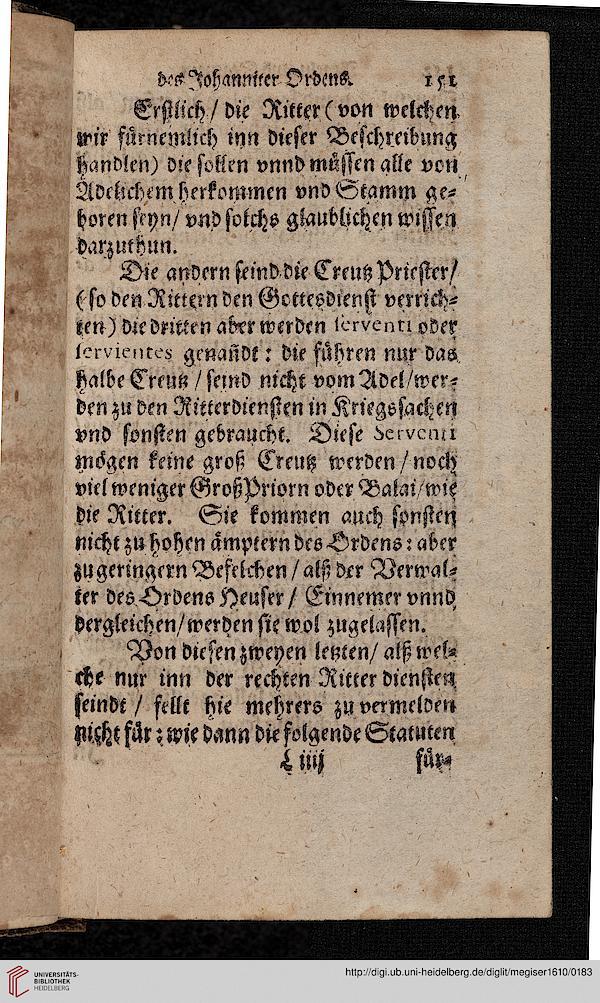 des Johanniter Ordens. 151
Erstlich / die Ritter (von welchen
wir fürnemlich inn dieser Beschreibung
handlen) die sollen vnnd müssen alle von
Adelichem herkommen vnd Stamm ge=
boren seyn / vnd solchs glaublichen wissen
darzuthun.
Die andern seind die Creutz Priester /
(so den Rittern den Gottesdienst verrich=
ten) die dritten aber werden serventi oder
servientes genañdt: die führen nur das
halbe Creutz / seind nicht vom Adel / wer=
den zu den Ritterdiensten in Kriegssachen
vnd sonsten gebraucht. Diese Serventi
mögen keine groß Creutz werden / noch
viel weniger GroßPriorn oder Balai / wie
die Ritter. Sie kommen auch sonsten
nicht zu hohen ämptern des Ordens: aber
zu geringern Befelchen / alß der Verwal=
ter des Ordens Heuser / Einnemer vnnd
dergleichen / werden sie wol zugelassen.
Von diesen zweyen letzten / alß wel=
che nur inn der rechten Ritter diensten
seindt / fellt hie mehrers zu vermelden
nicht für: wie dann die folgende Statuten
L iiij für=
UNIVERSITÄTS-
BIBLIOTHEK
HEIDELBERG
http://digi.ub.uni-heidelberg.de/diglit/megiser1610/0183